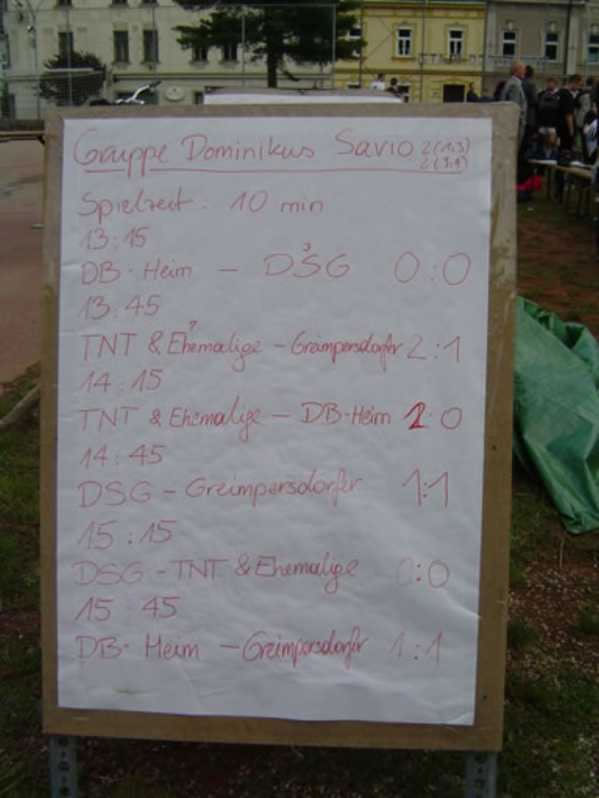 Gruppe Dominikus Savio 2(1,3)
2(3,1)
Spielzeit: 10 min
13:15
DB-Heim - DSG 0:0
3
13:45
TNT & Ehemalige - Greimpersdorfer 2:1
14:15
TNT & Ehemalige - DB-Heim 2:0
14:45
DSG - Greimpersdorfer 1:1
15:15
DSG - TNT & Ehemalige 0:0
15:45
DB-Heim - Greimpersdorfer 1:1